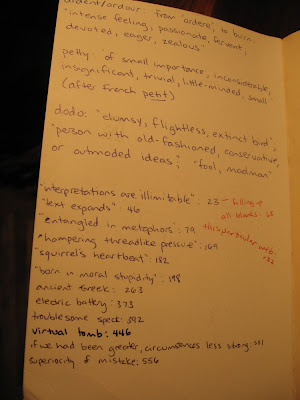 ardent/ardour: from "ardere", to burn:
"intense feeling, passionate, fervent,
devoted, eager, zealous"
petty: "of small importance, inconsiderable,
insignificant, trivial, little-minded, small"
(after French petit)
dodo: "clumsy, flightless, extinct bird",
"person with old-fashioned, conservative,
or outmoded ideas", "fool, madman"
"interpretations are illimitable": 23 - filling up
all blanks: 68
"text expands": 46
"entangled in metaphors": 79
this particular web:
132
"hampering threadlike pressure": 169
"squirrel's heartbeat": 182
"born in moral stupidity": 198
ancient Greek: 263
electric battery: 373
troublesome speck: 392
virtual tomb: 446
if we had been greater, circumstances less strong: 551
superiority of mistake: 556